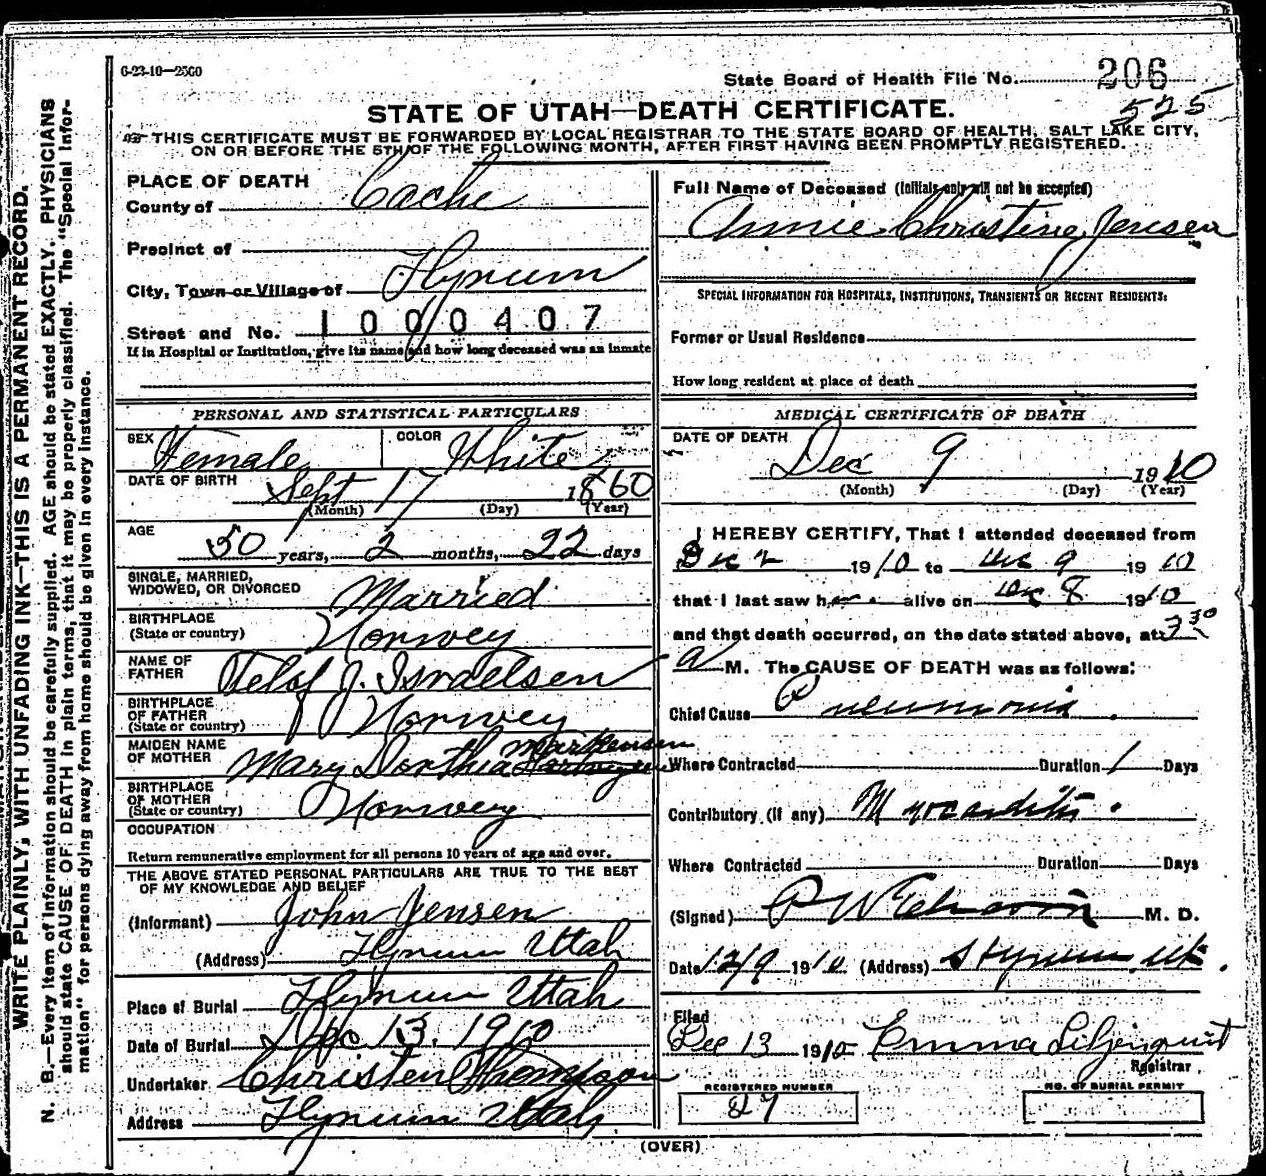 6-23-10—2500
State Board of Health File No. 206
525
STATE OF UTAH—DEATH CERTIFICATE.
THIS CERTIFICATE MUST BE FORWARDED BY LOCAL REGISTRAR TO THE STATE BOARD OF HEALTH, SALT LAKE CITY,
ON OR BEFORE THE 5TH OF THE FOLLOWING MONTH, AFTER FIRST HAVING BEEN PROMPTLY REGISTERED.
PLACE OF DEATH
County of Cache
Precinct of
City, Town or Village of Hyrum
Street and No. 1 0 0 0 4 0 7
If in Hospital or Institution, give its name and how long deceased was an inmate
PERSONAL AND STATISTICAL PARTICULARS
SEX Female COLOR White
DATE OF BIRTH Sept 17 1860
(Month) (Day) (Year)
AGE 50 years, 2 months, 22 days
SINGLE, MARRIED,
WIDOWED, OR DIVORCED Married
BIRTHPLACE
(State or country) Norwey
NAME OF
FATHER J. Israelsen
BIRTHPLACE
OF FATHER
(State or country) Norwey
MAIDEN NAME
OF MOTHER Mary Dorthia
BIRTHPLACE
OF MOTHER
(State or country) Norwey
OCCUPATION
Return remunerative employment for all persons 10 years of age and over.
THE ABOVE STATED PERSONAL PARTICULARS ARE TRUE TO THE BEST
OF MY KNOWLEDGE AND BELIEF
(Informant) John Jensen
(Address) Hyrum Utah
Place of Burial Hyrum Utah
Date of Burial Dec 13. 1910
Undertaker Christen Thompson
Address Hyrum Utah
Full Name of Deceased (Initials only will not be accepted)
Annie Christine Jensen
SPECIAL INFORMATION FOR HOSPITALS, INSTITUTIONS, TRANSIENTS OR RECENT RESIDENTS:
Former or Usual Residence
How long resident at place of death
MEDICAL CERTIFICATE OF DEATH
DATE OF DEATH
Dec 9 1910
(Month) (Day) (Year)
I HEREBY CERTIFY, That I attended deceased from
Dec 2 1910 to Dec 9 1910
that I last saw her alive on Dec 8 1910
and that death occurred, on the date stated above, at 3 30
a M. The CAUSE OF DEATH was as follows:
Chief Cause Pneumonia.
Where Contracted Duration 1 Days
Contributory (if any) Myocarditis.
Where Contracted Duration Days
(Signed) M. D.
Date 12/9 1910 (Address) Hyrum, Ut.
Filed
Dec 13 1910 Emma Liljenquist
Registrar
REGISTERED NUMBER
27
NO. OF BURIAL PERMIT
(OVER)
WRITE PLAINLY, WITH UNFADING INK—THIS IS A PERMANENT RECORD.
N. B.—Every item of information should be carefully supplied. AGE should be stated EXACTLY. PHYSICIANS
should state CAUSE OF DEATH in plain terms, that it may be properly classified. The "Special Infor-
mation" for persons dying away from home should be given in every instance.